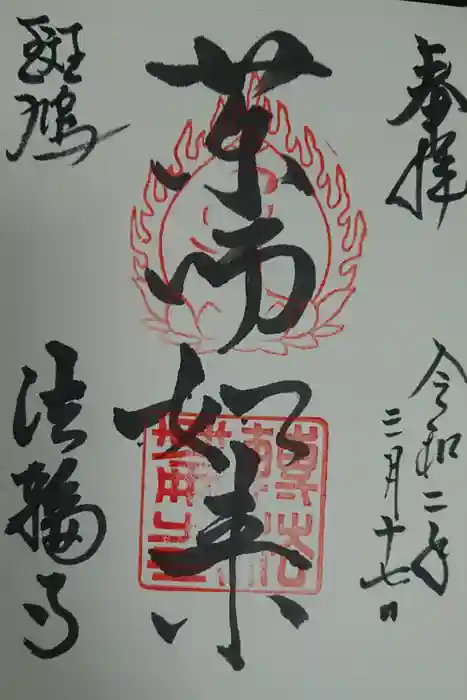 奉拝
令和二年
三月十七日
薬師如来
斑鳩
法輪寺